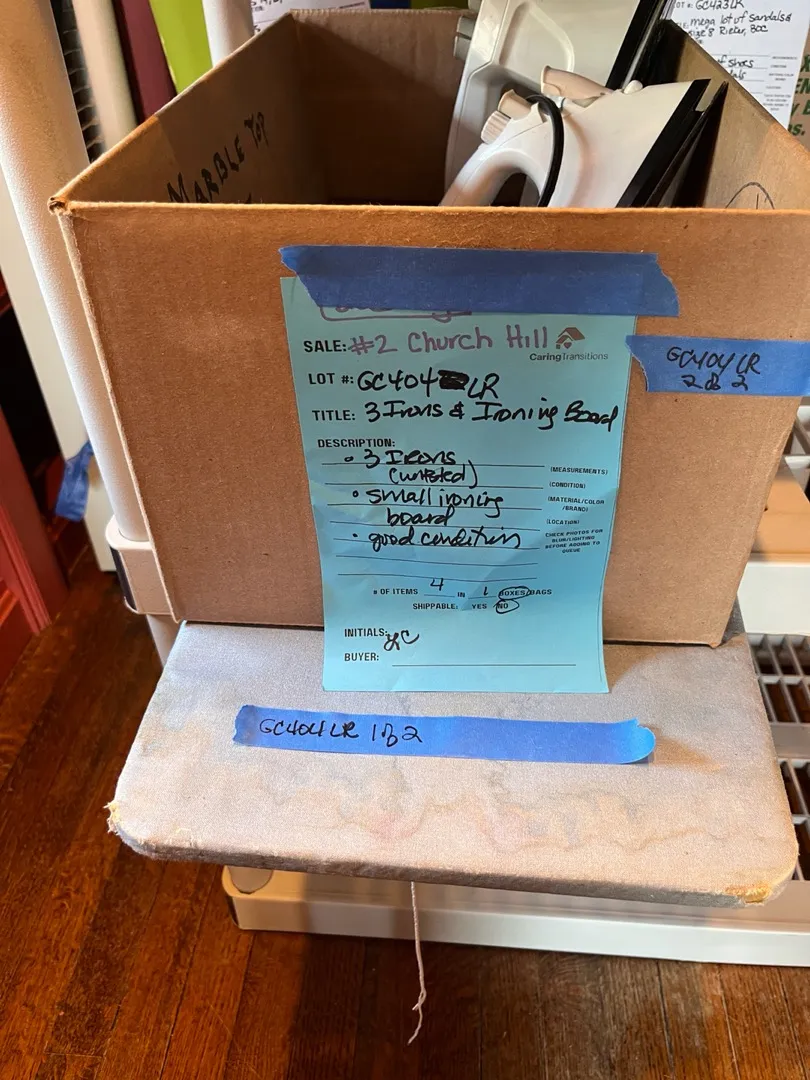 LOT #: GC423LR
mega lot of sandals &
size 8 Rieker, BOC
of shoes
MARBLE TOP
SALE: #2 Church Hill
CaringTransitions
LOT #: GC404 LR
TITLE: 3 Irons & Ironing Board
DESCRIPTION:
• 3 Irons
(untested)
(MEASUREMENTS)
(CONDITION)
• small ironing
board
(MATERIAL/COLOR
/BRAND)
(LOCATION)
• good condition
CHECK PHOTOS FOR
BLUR/LIGHTING
BEFORE ADDING TO
QUEUE
# OF ITEMS 4 IN 1 BOXES/BAGS
SHIPPABLE: YES NO
INITIALS:
BUYER:
GC404LR
2 of 2
GC404LR 1 of 2